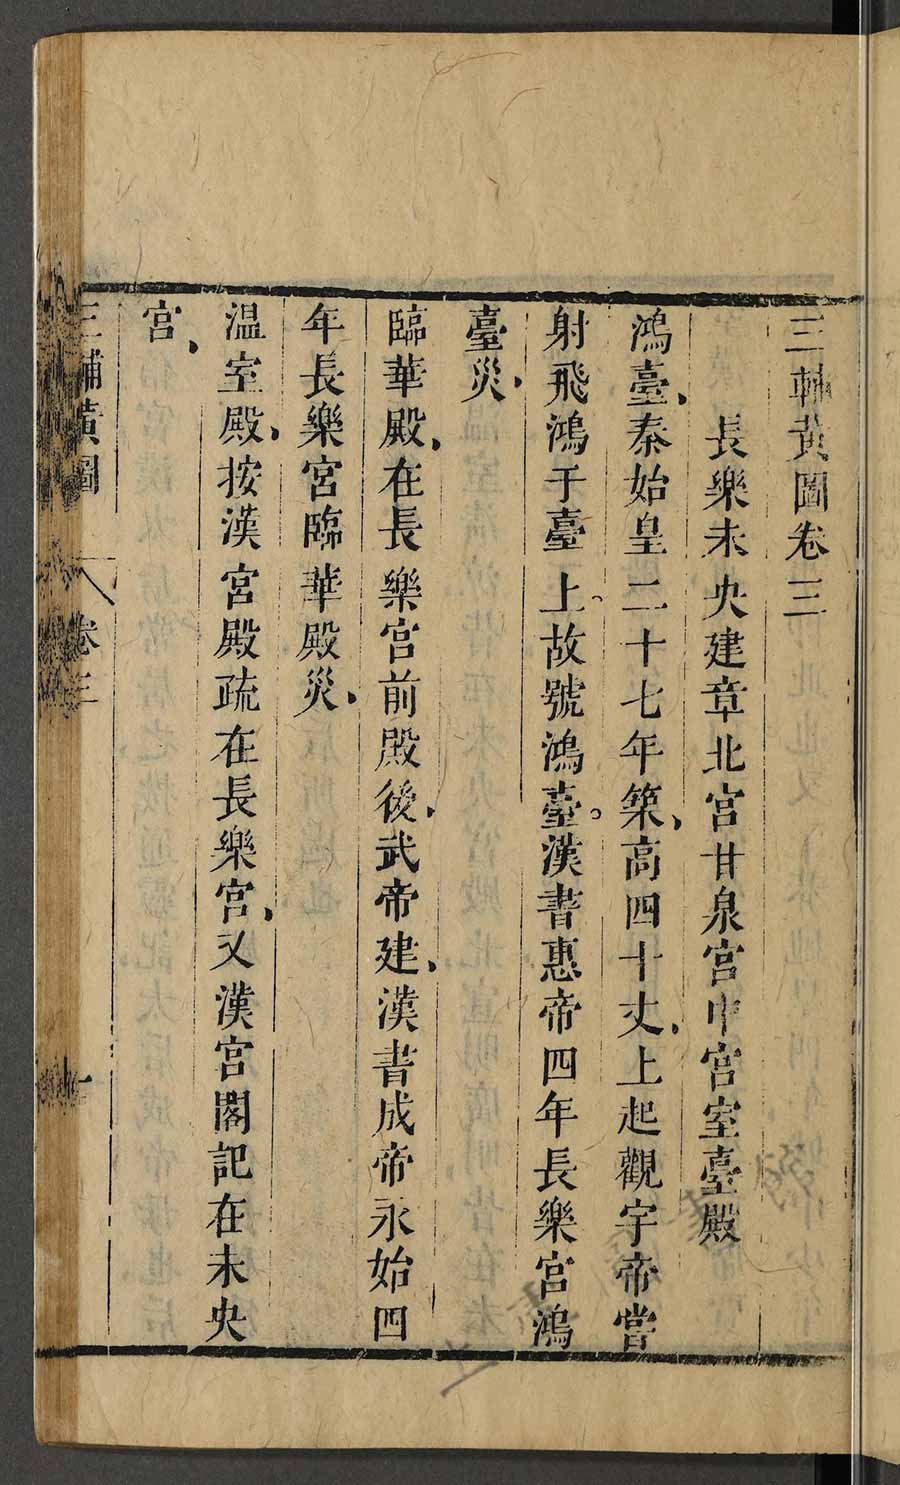 三輔黃圖卷三
長樂未央建章北宮甘泉宮中宮室臺殿
鴻臺、秦始皇二十七年築、高四十丈、上起觀宇帝嘗
射飛鴻于臺上。故號鴻臺。漢書惠帝四年長樂宮鴻
臺災、
臨華殿、在長樂宮前殿後、武帝建、漢書成帝永始四
年長樂宮臨華殿災、
温室殿、按漢宮殿疏在長樂宮、又漢宮閣記在未央
宮、
三輔黃圖 卷三 一